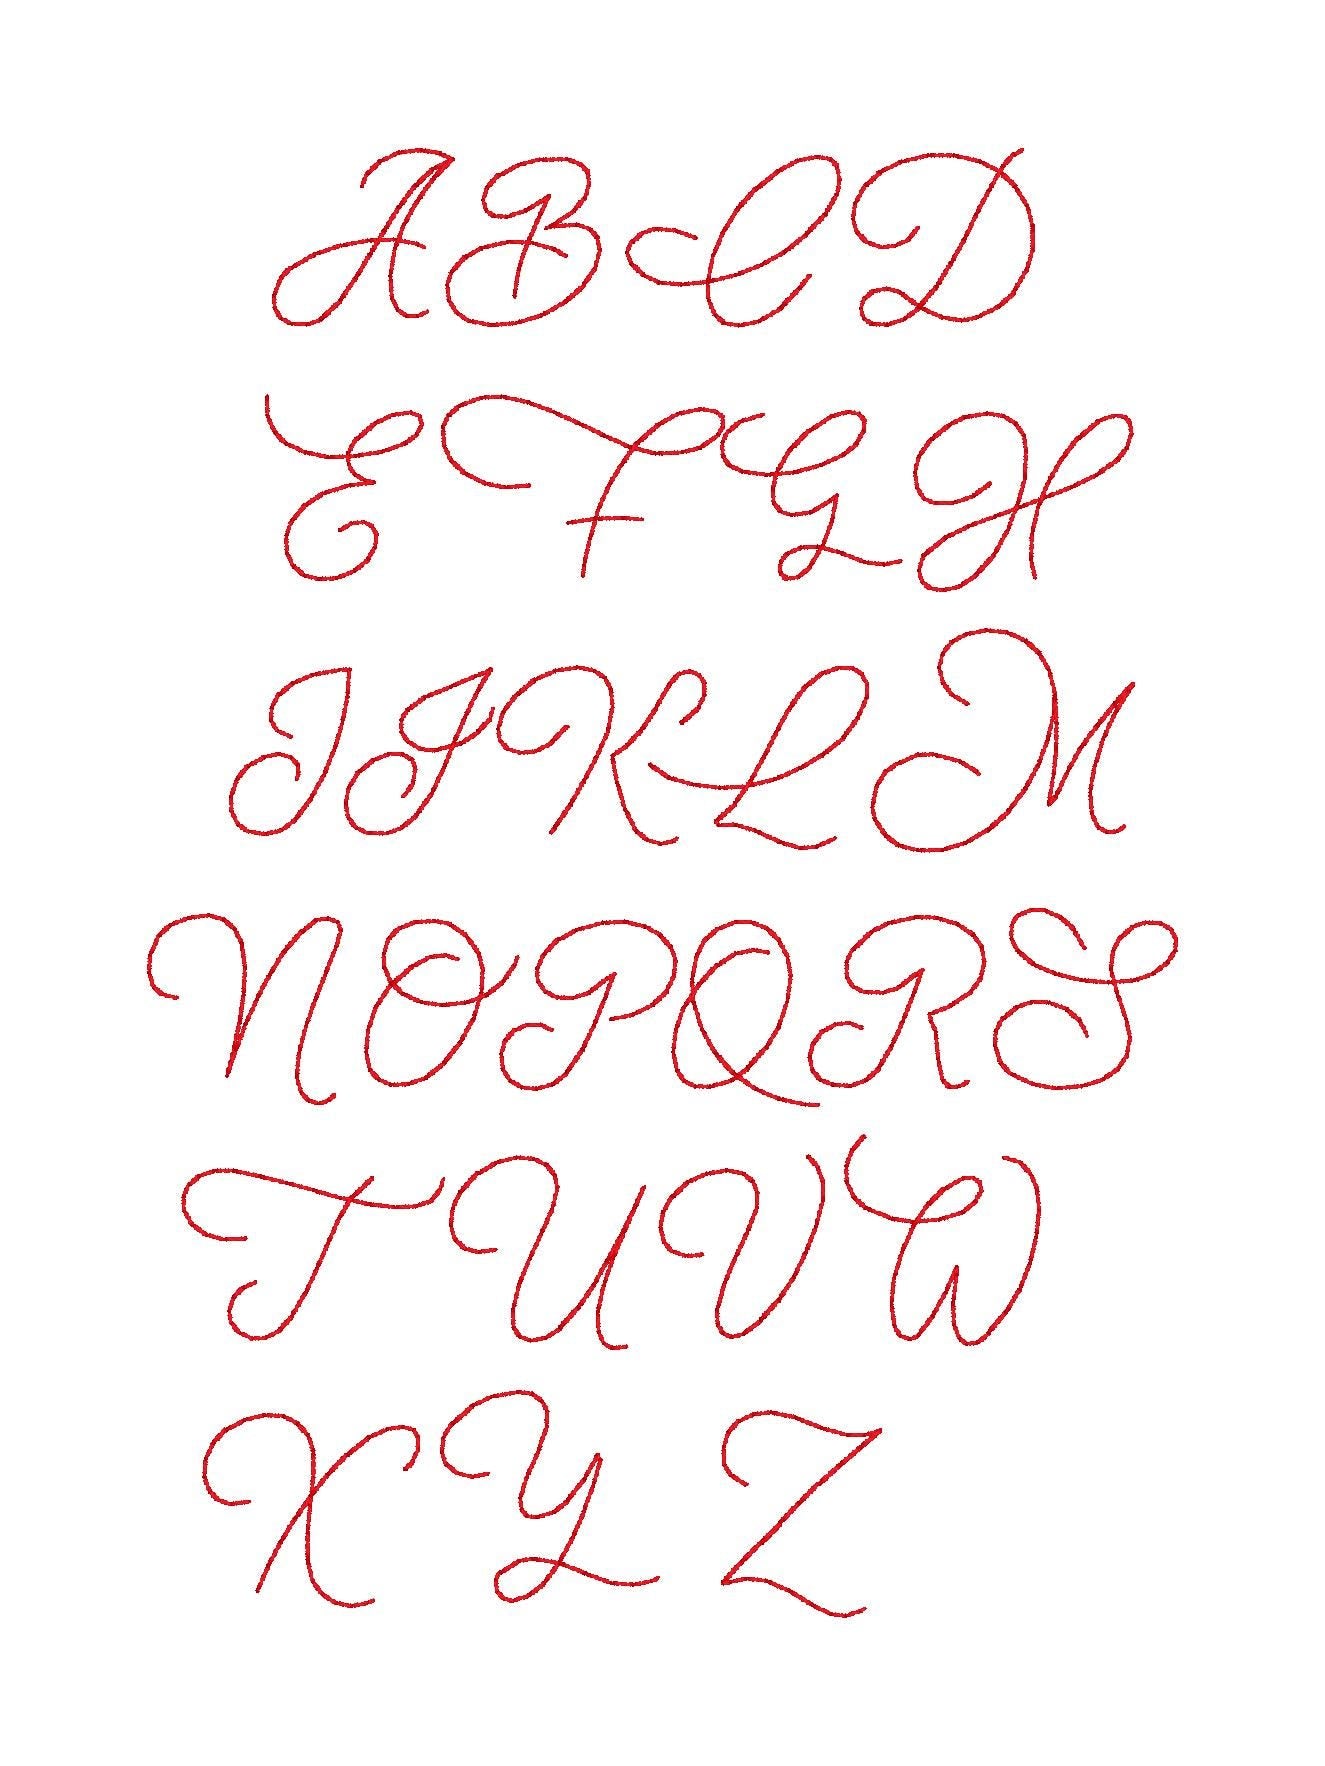 A B C D
E F G H
I J K L M
N O P Q R S
T U V W
X Y Z